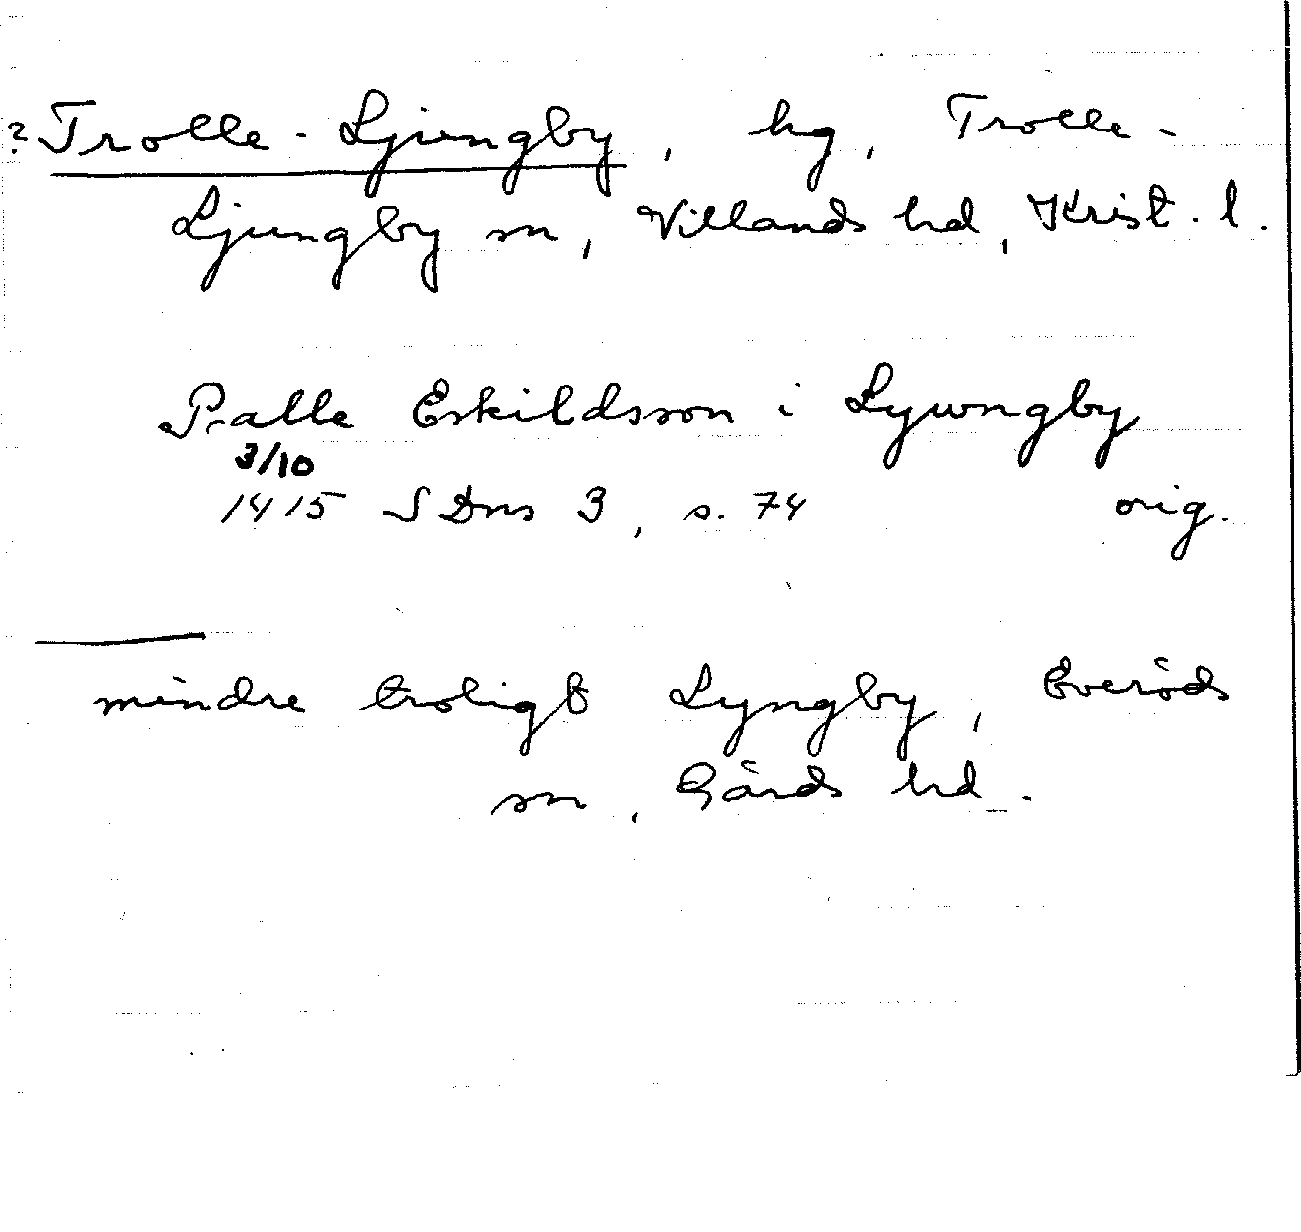 ? Trolle-Ljungby, hg, Trolle-
Ljungby sn, Villands hd, Krist. l.
Palle Eskildsson i Lywngby
3/10
1415 SDns 3, s. 74 orig.
mindre troligt Lyngby, Everöds
sn, Gärds hd.